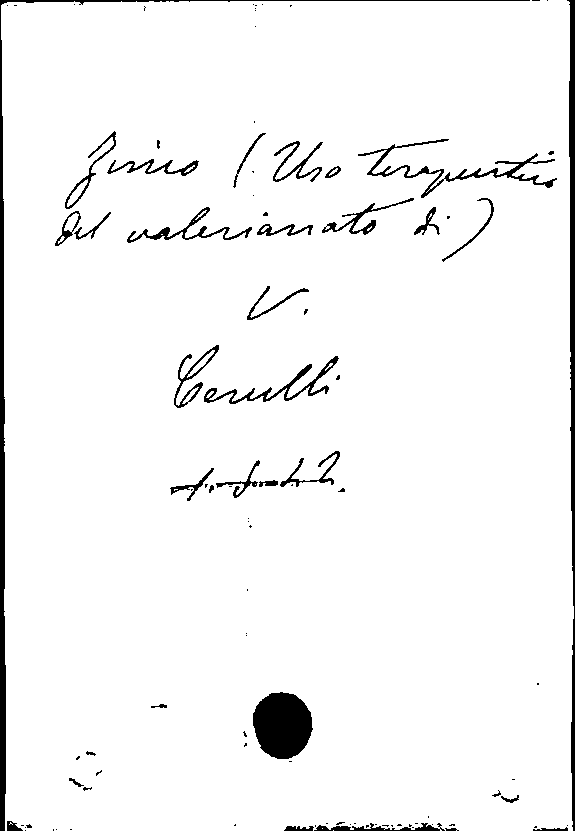 Zinco (Uso terapeutico
del valerianato di)
V.
Cerulli